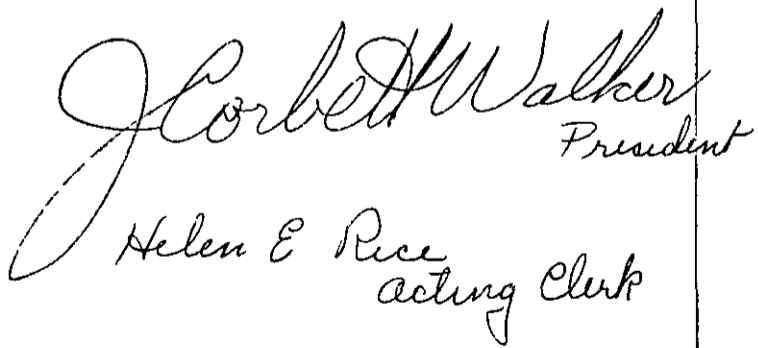 J Corbett Walker
President
Helen E Rice
acting Clerk